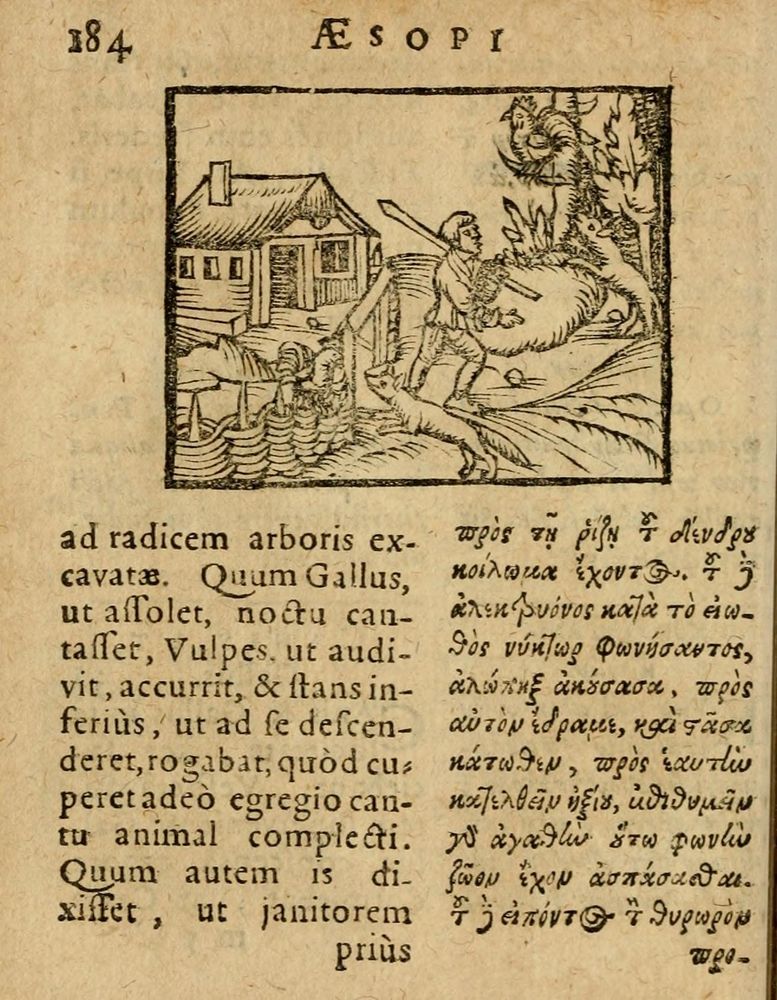 184 ÆSOPI
ad radicem arboris ex-
cavatæ. Quum Gallus,
ut aſſolet, noctu can-
taſſet, Vulpes, ut audi-
vit, accurrit, & ſtans in-
feriùs, ut ad ſe deſcen-
deret, rogabat, quòd cu-
peret adeò egregio can-
tu animal complecti.
Quum autem is di-
xiſſet, ut janitorem
priùs
πρὸς τῇ ῥίζῃ τ͂ δένδρȣ
κοίλωμα ἔχοντος. τ͂ ȷ̀
ἀλεκτρυόνος κατὰ τὸ εἰω-
θὸς νύκτωρ φωνήσαντος,
ἀλώπηξ ἀκȣ́σασα, πρὸς
αὐτὸν ἔδραμε, καὶ στᾶσα
κάτωθεν, πρὸς ἑαυτὴν
κατελθεῖν ἠξίȣ, ἐπιθυμεῖν
γὸ ἀγαθὴν ȣ̔́τω φωνὴν
ζῶον ἔχον ἀσπάσασθαι.
τ͂ ȷ̀ εἰπόντος τ̀ θυρωρὸν
προ-